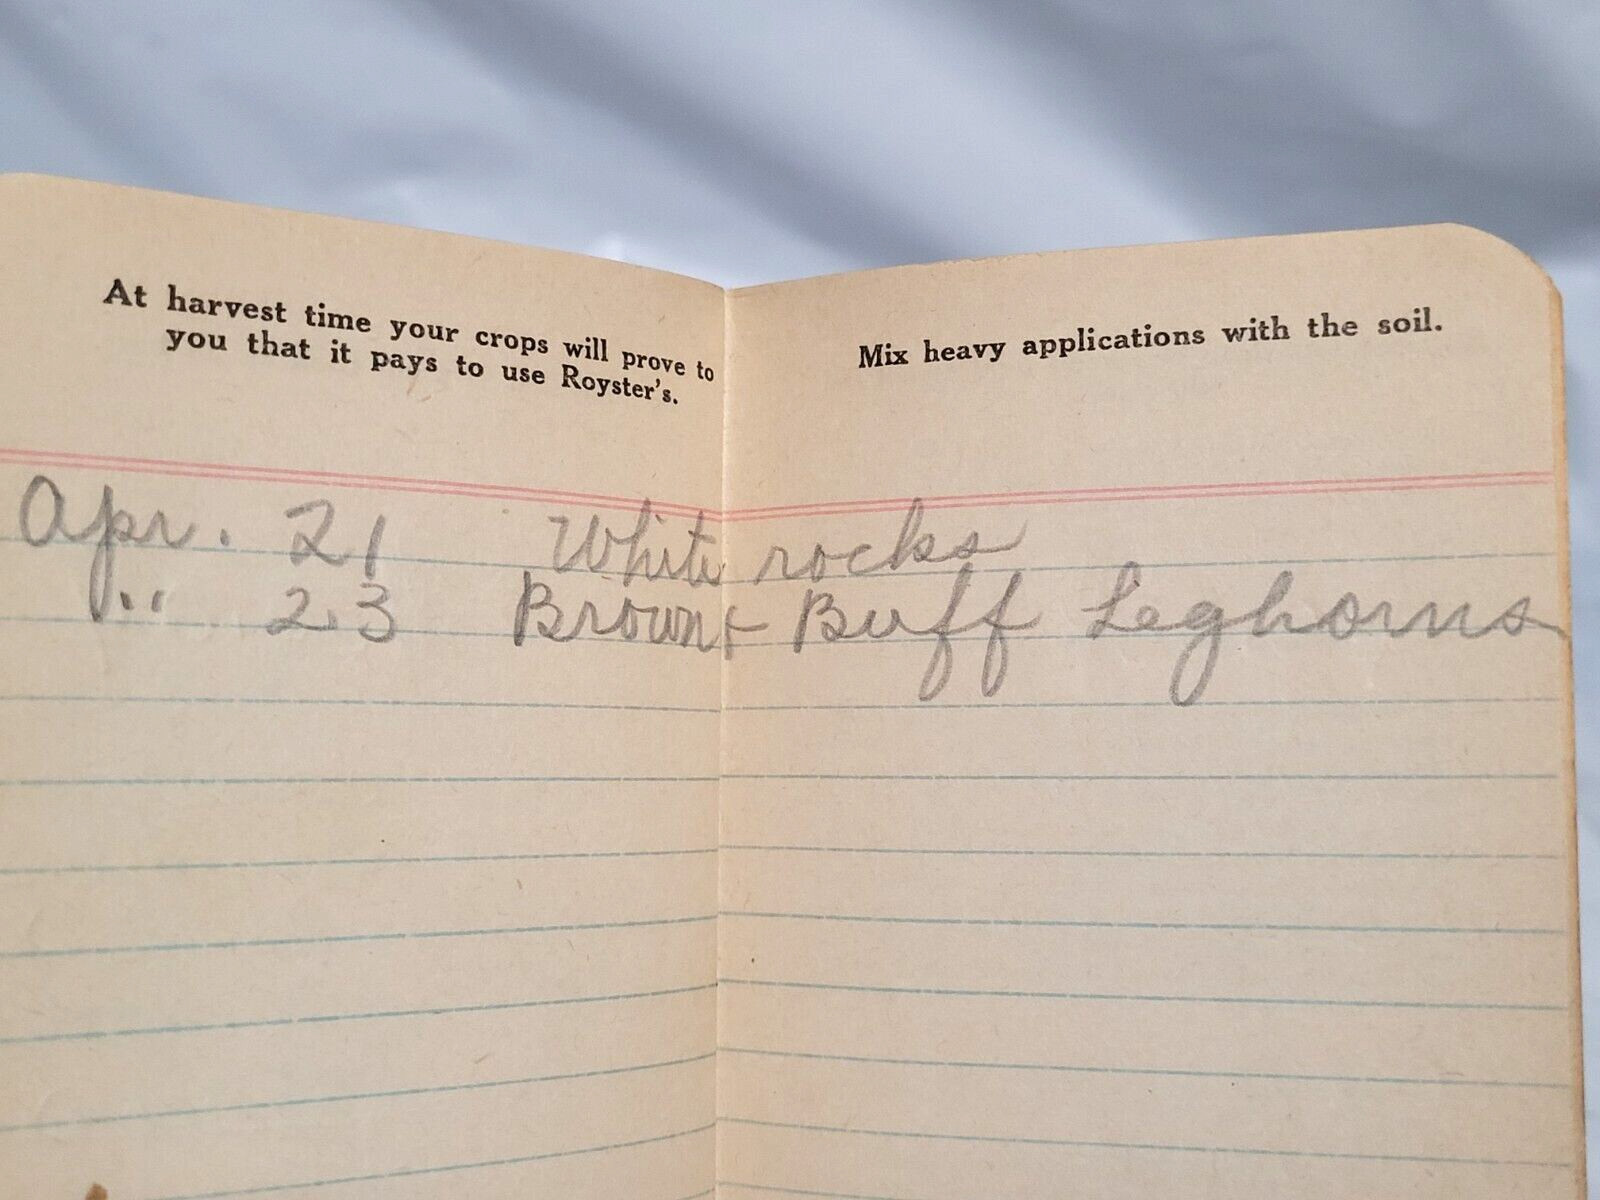 At harvest time your crops will prove to
you that it pays to use Royster's.
Mix heavy applications with the soil.
Apr. 21 White rocks
" 23 Brown + Buff Leghorns